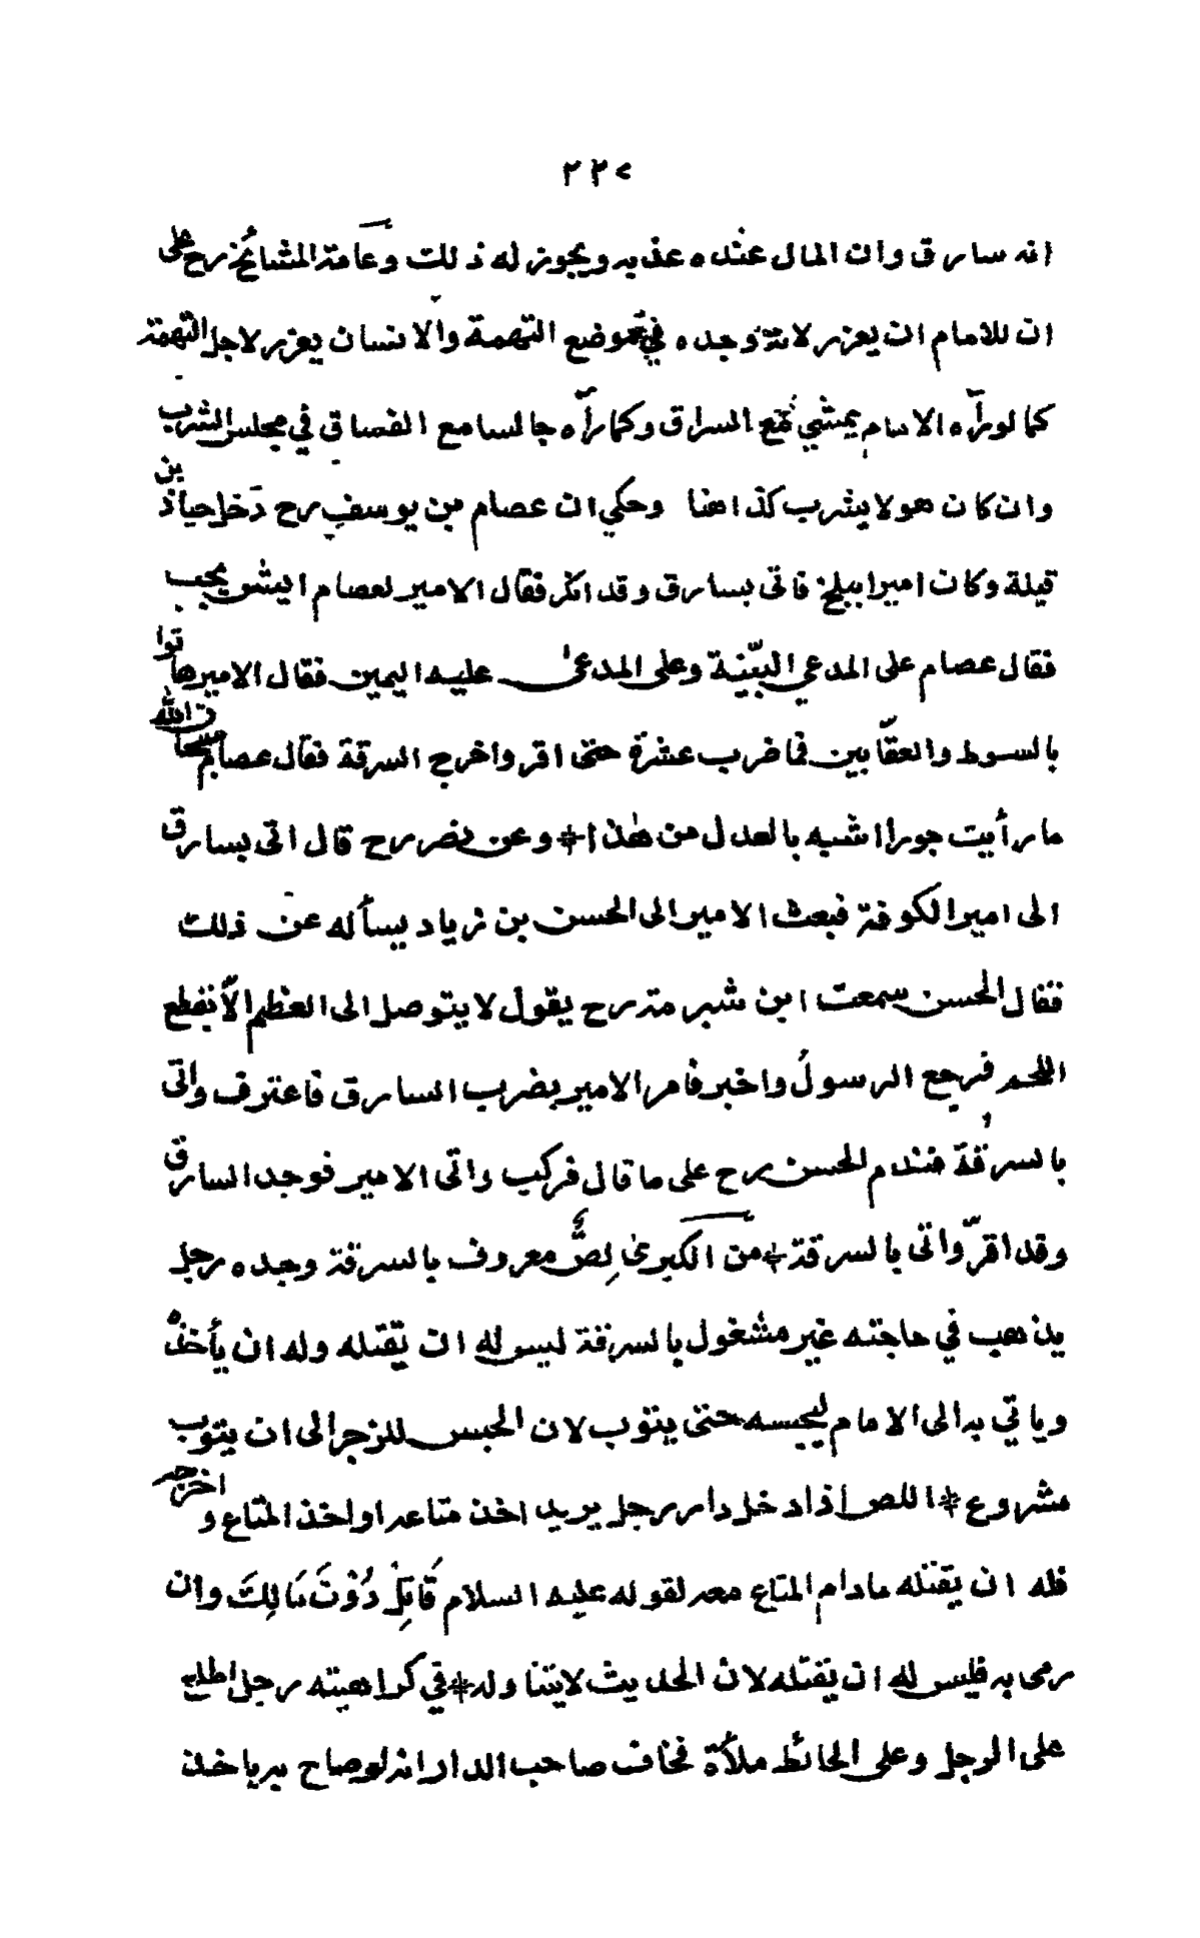 ٢٢٥
انه سارق وان المال عنده عذبه ويجوز له ذلك وعامة المشائخ رح على
ان للامام ان يعزر لانه وجده في موضع التهمة والانسان يعزر لاجل التهمة
كما لو رآه الامام يمشي مع السراق وكما رآه جالسا مع الفساق في مجلس الشرب
وان كان هو لا يشرب كذا هنا وحكي ان عصام بن يوسف رح دخل حيان بن
قيلة وكان اميرا ببلخ فاتى بسارق وقد انكر فقال الامير لعصام ايش يجب
فقال عصام على المدعي البيّنة وعلى المدعى عليه اليمين فقال الامير هاتوا
بالسوط والعقابين فما ضرب عشرة حتى اقر واخرج السرقة فقال عصام سبحان الله
ما رأيت جورا اشبه بالعدل من هذا * وعن نصر رح قال اتى بسارق
الى امير الكوفة فبعث الامير الى الحسن بن زياد يسأله عن ذلك
فقال الحسن سمعت ابن شبرمة رح يقول لا يتوصل الى العظم الّا بقطع
اللحم فرجع الرسول واخبر فامر الامير بضرب السارق فاعترف واتى
بالسرقة فندم الحسن رح على ما قال فركب واتى الامير فوجد السارق
وقد اقرّ واتى بالسرقة * من الكبرى لِصٌّ معروف بالسرقة وجده رجل
يذهب في حاجته غير مشغول بالسرقة ليس له ان يقتله وله ان يأخذه
وياتي به الى الامام ليحبسه حتى يتوب لان الحبس للزجر الى ان يتوب
مشروع * اللص اذا دخل دار رجل يريد اخذ متاعه او اخذ المتاع واخرجه
فله ان يقتله ما دام المتاع معه لقوله عليه السلام قَاتِلْ دُوْنَ مَالِكَ وان
رمى به فليس له ان يقتله لان الحديث لا يتناوله * في كراهيته رجل اطلع
على الرجل وعلى الحائط ملأة فخاف صاحب الدار انه لو صاح به ياخذ